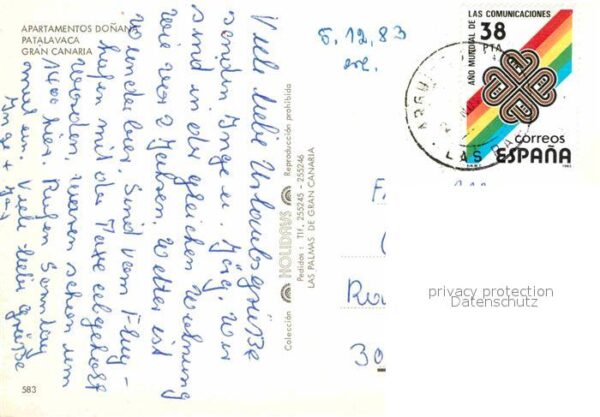 APARTAMENTOS DOÑANA
PATALAVACA
GRAN CANARIA
Viele liebe Urlaubsgrüße
senden Inge u. Jörg. Wir
sind in der gleichen Wohnung
wie vor 2 Jahren. Wetter ist
wunderbar. Sind vom Flug-
hafen mit der Taxe abgeholt
worden, waren schon um
1400 hier. Rufen Sonntag
mal an. Viele liebe Grüße
Inge + Jörg
583
Colección HOLIDAYS Reproducción prohibida
Pedidos: Tlf. 255245 - 255246
LAS PALMAS DE GRAN CANARIA
5.12.83
AÑO MUNDIAL DE LAS COMUNICACIONES
38
PTA
correos
ESPAÑA
1983
ARGU
LAS PA
30
privacy protection
Datenschutz